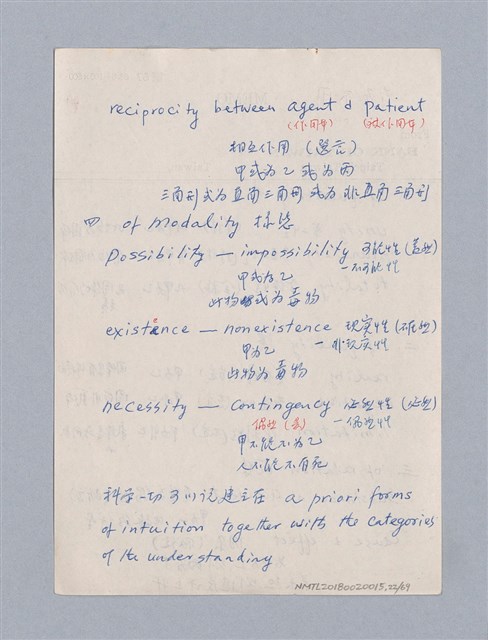 reciprocity between agent & patient
(作用者) (被作用者)
相互作用 (選言)
甲或為乙或為丙
三角形或為直角三角形 或為非直角三角形
四 of modality 樣態
possibility — impossibility 可能性 (蓋然)
甲或為乙 — 不可能性
此物或為毒物
existence — nonexistence 現实性
甲為乙 — 非現实性
此物為毒物
necessity — contingency 必然性 (必然)
偶然 — 偶然性
甲不能不為乙
人不能不自死
科学一切可以说建立在 a priori forms
of intuition together with the categories
of the understanding
NMTL20180020015,22/69